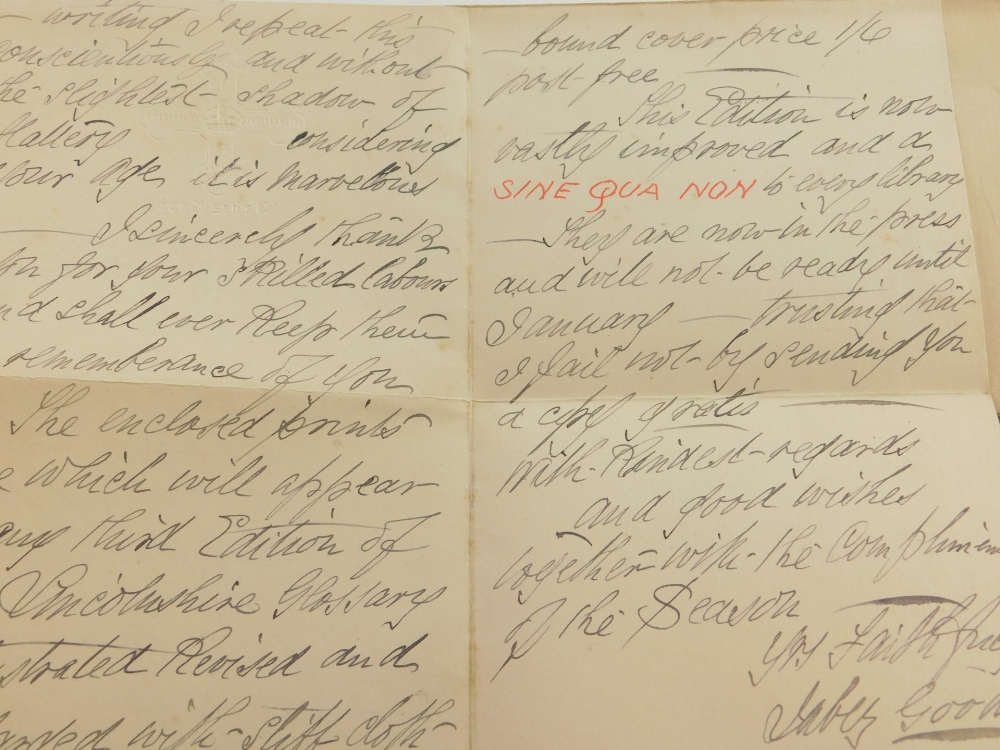 — writing I repeat this
conscientiously and without
the slightest shadow of
flattery considering
your age it is marvellous
— I sincerely thank
you for your skilled labours
and shall ever keep them
rememberance of you
The enclosed prints
which will appear
third Edition of
Lincolnshire Glossary
Revised and
with stiff cloth
— bound cover price 1/6
post free —
This Edition is now
vastly improved and a
SINE QUA NON to every library
— They are now in the press
and will not be ready until
January — trusting that
I fail not by sending you
a copy gratis —
With Kindest regards
and good wishes
together with the Complimen
of the Season —
Yrs Faithfu
Jabez Good